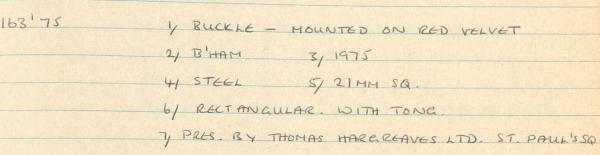 163'75 1, BUCKLE – MOUNTED ON RED VELVET
2, B'HAM 3, 1975
4, STEEL 5, 21MM SQ.
6, RECTANGULAR. WITH TONG.
7, PRES. BY THOMAS HARGREAVES LTD. ST. PAUL'S SQ